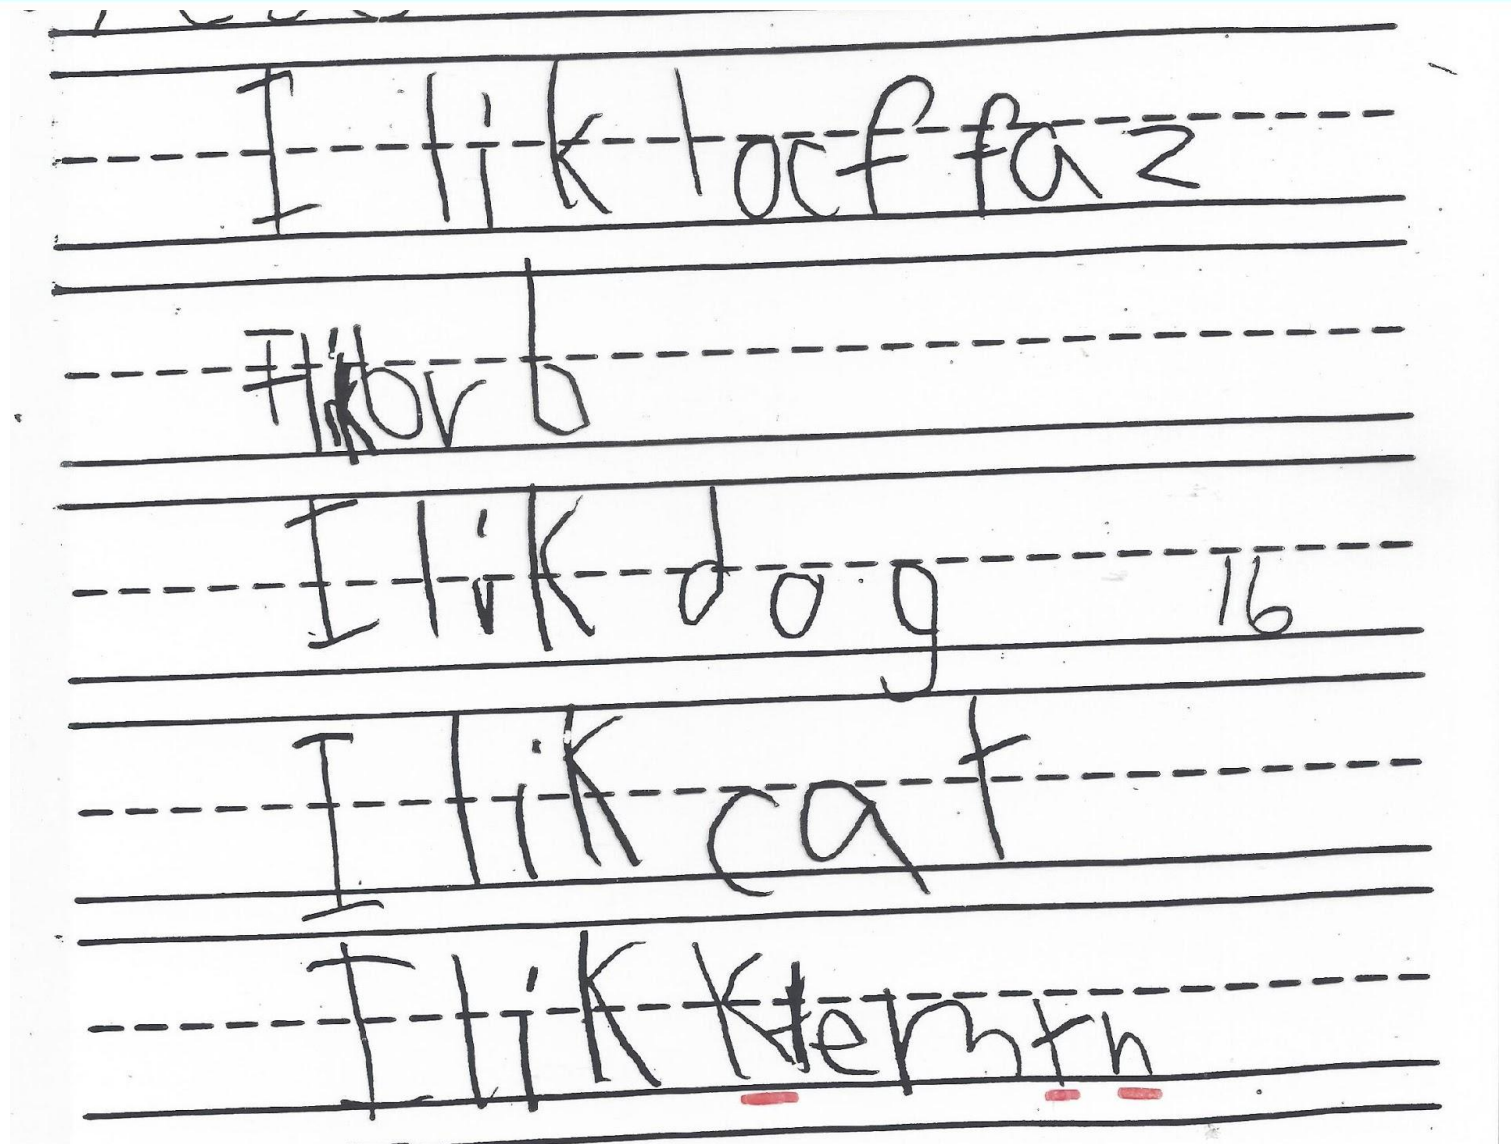 I lik locf faz
I lik orb
I lik dog 16
I lik cat
I lik